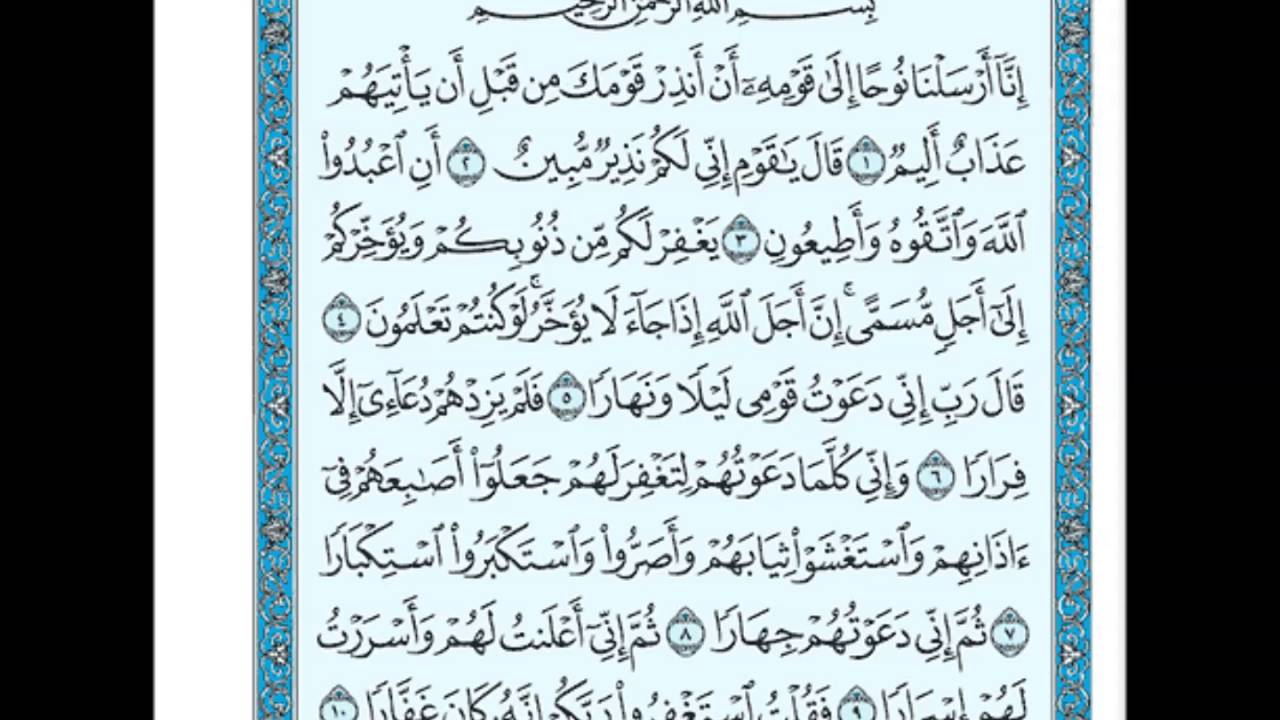 بِسْمِ اللَّهِ الرَّحْمَٰنِ الرَّحِيمِ
إِنَّآ أَرْسَلْنَا نُوحًا إِلَىٰ قَوْمِهِۦٓ أَنْ أَنذِرْ قَوْمَكَ مِن قَبْلِ أَن يَأْتِيَهُمْ
عَذَابٌ أَلِيمٌ ١ قَالَ يَٰقَوْمِ إِنِّي لَكُمْ نَذِيرٌ مُّبِينٌ ٢ أَنِ ٱعْبُدُوا۟
ٱللَّهَ وَٱتَّقُوهُ وَأَطِيعُونِ ٣ يَغْفِرْ لَكُم مِّن ذُنُوبِكُمْ وَيُؤَخِّرْكُمْ
إِلَىٰٓ أَجَلٍ مُّسَمًّى ۚ إِنَّ أَجَلَ ٱللَّهِ إِذَا جَآءَ لَا يُؤَخَّرُ ۚ لَوْ كُنتُمْ تَعْلَمُونَ ٤
قَالَ رَبِّ إِنِّي دَعَوْتُ قَوْمِي لَيْلًا وَنَهَارًا ٥ فَلَمْ يَزِدْهُمْ دُعَآءِيٓ إِلَّا
فِرَارًا ٦ وَإِنِّي كُلَّمَا دَعَوْتُهُمْ لِتَغْفِرَ لَهُمْ جَعَلُوٓا۟ أَصَٰبِعَهُمْ فِيٓ
ءَاذَانِهِمْ وَٱسْتَغْشَوْا۟ ثِيَابَهُمْ وَأَصَرُّوا۟ وَٱسْتَكْبَرُوا۟ ٱسْتِكْبَارًا
٧ ثُمَّ إِنِّي دَعَوْتُهُمْ جِهَارًا ٨ ثُمَّ إِنِّيٓ أَعْلَنتُ لَهُمْ وَأَسْرَرْتُ
لَهُمْ إِسْرَارًا ٩ فَقُلْتُ ٱسْتَغْفِرُوا۟ رَبَّكُمْ إِنَّهُۥ كَانَ غَفَّارًا ١٠